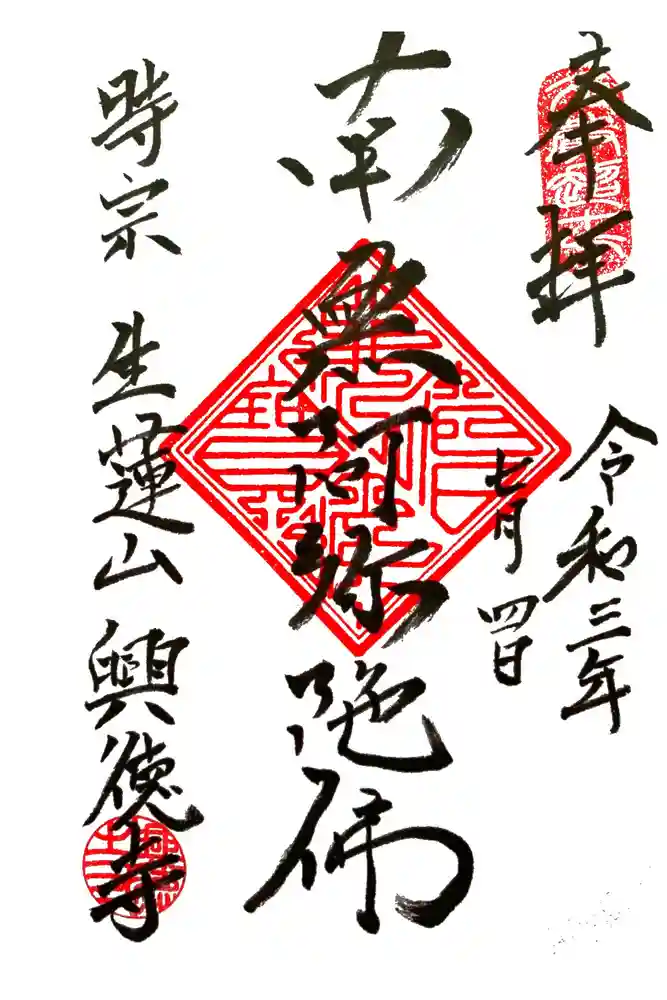 奉拝
令和三年
七月四日
南無阿弥陀佛
時宗 生蓮山 興徳寺